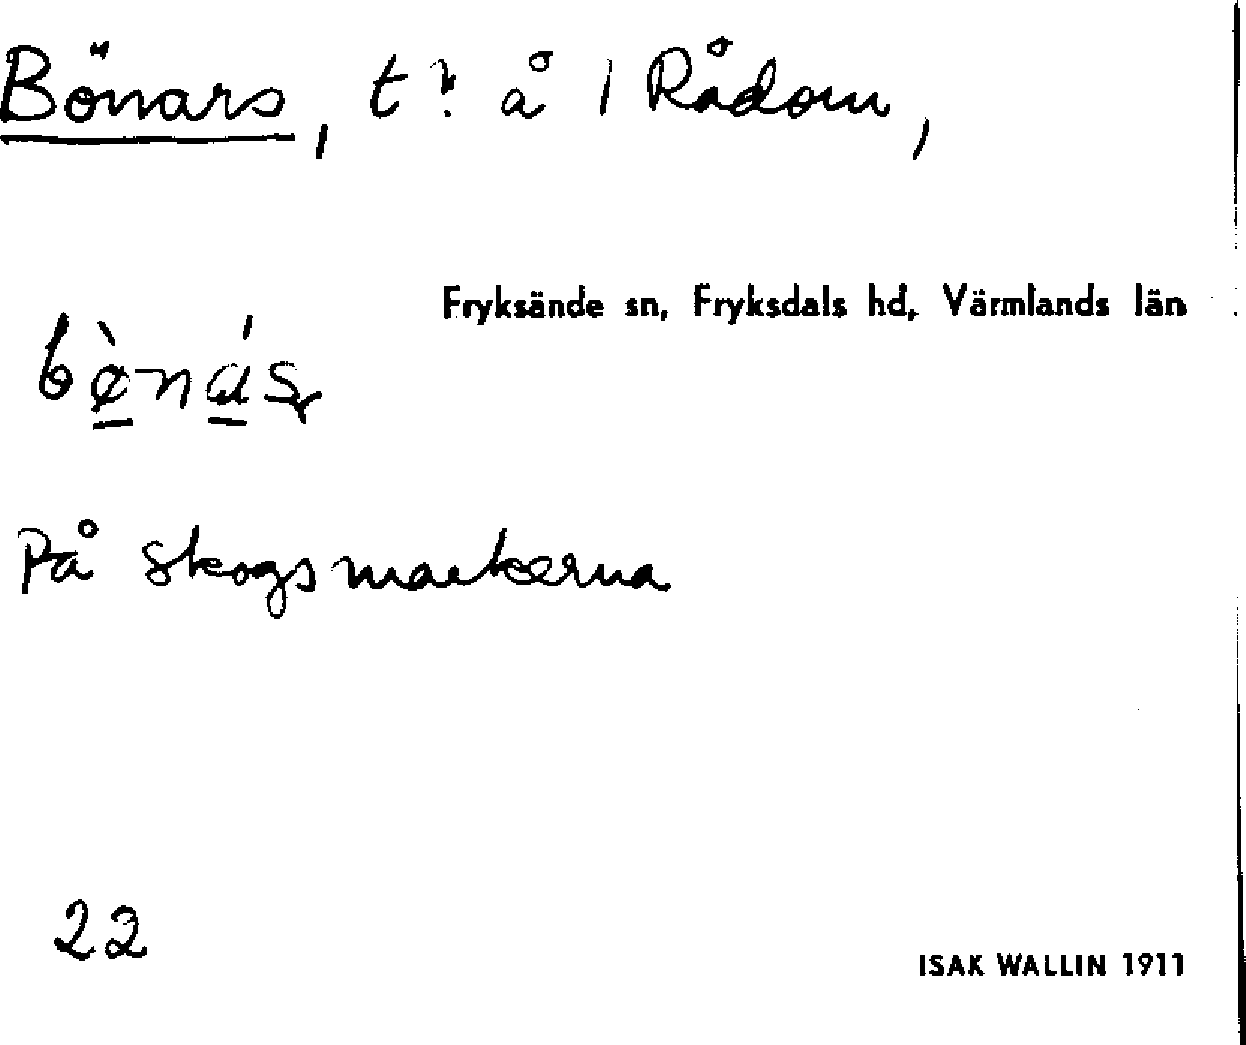 Bönars, tr å 1 Rådom,
Fryksände sn, Fryksdals hd, Värmlands län
På skogsmarkerna
22
ISAK WALLIN 1911